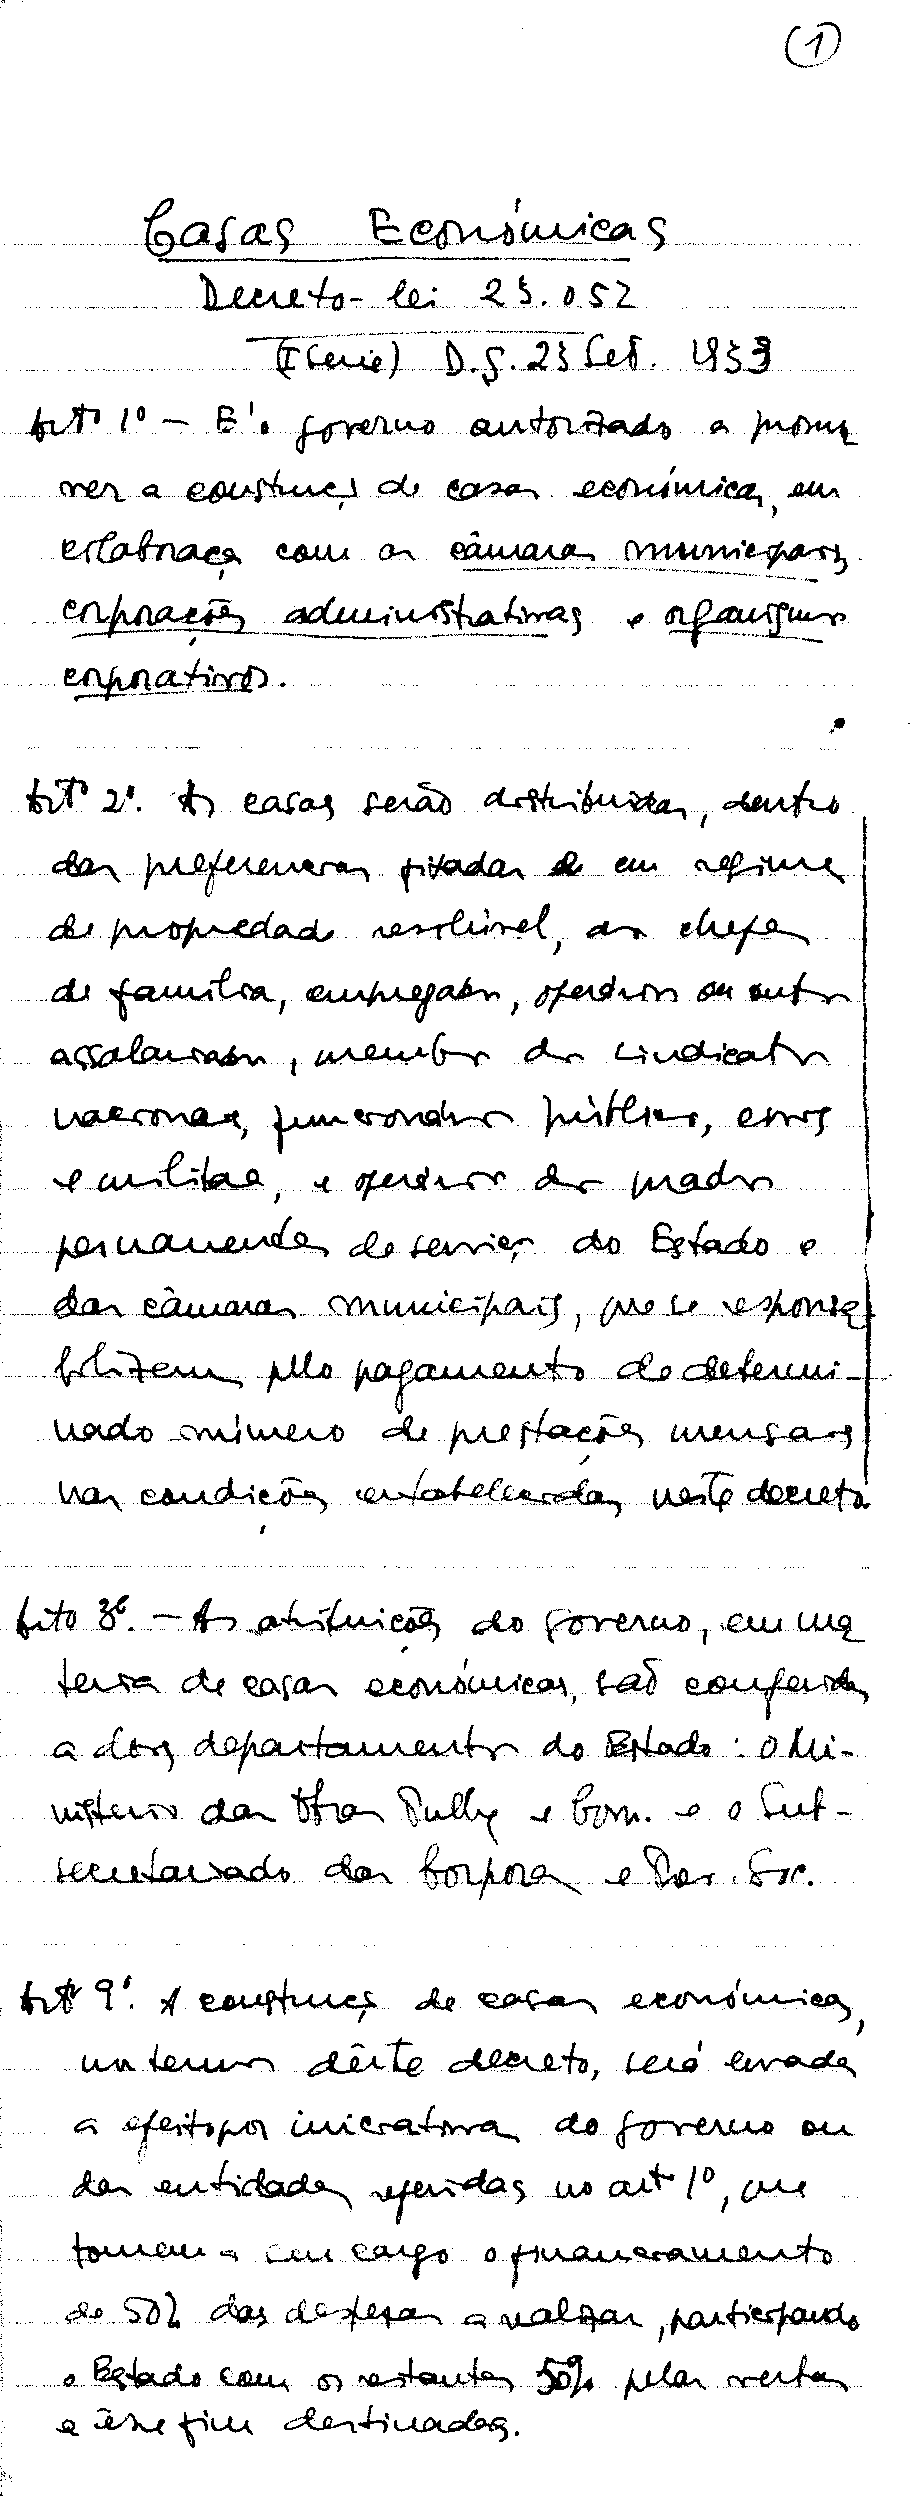 (1)
Casas Económicas
Decreto-lei 23.052
(I Serie) D.G. 23 Set. 1933
Artº 1º - É o governo autorizado a promo
ver a construção de casas económicas, em
colaboração com as câmaras municipais,
corporações administrativas e organismos
corporativos.
Artº 2º. As casas serão distribuidas, dentro
das preferencias fixadas e em regime
de propriedade resolúvel, aos chefes
de família, empregados, operários ou outros
assalariados, membros dos sindicatos
nacionais, funcionários públicos, civis
e militares, e operários dos quadros
permanentes de serviços do Estado e
das câmaras municipais, que se responsa
bilizem pelo pagamento de determi-
nado número de prestações mensais
nas condições estabelecidas neste decreto.
Arto 3º. - As atribuições do governo, em ma
teria de casas económicas, são conferidas
a dois departamentos do Estado: o Mi-
nisterio das Obras Publ e Com. e o Sub-
secretariado das Corpora e Prev. Soc.
Artº 9º. A construção de casas económicas,
nos termos dêste decreto, será levada
a efeito por iniciativa do governo ou
das entidades referidas no artº 1º, que
tomem a seu cargo o financiamento
de 50% das despesas a realizar, participando
o Estado com os restantes 50% pelas verbas
a êsse fim destinadas.